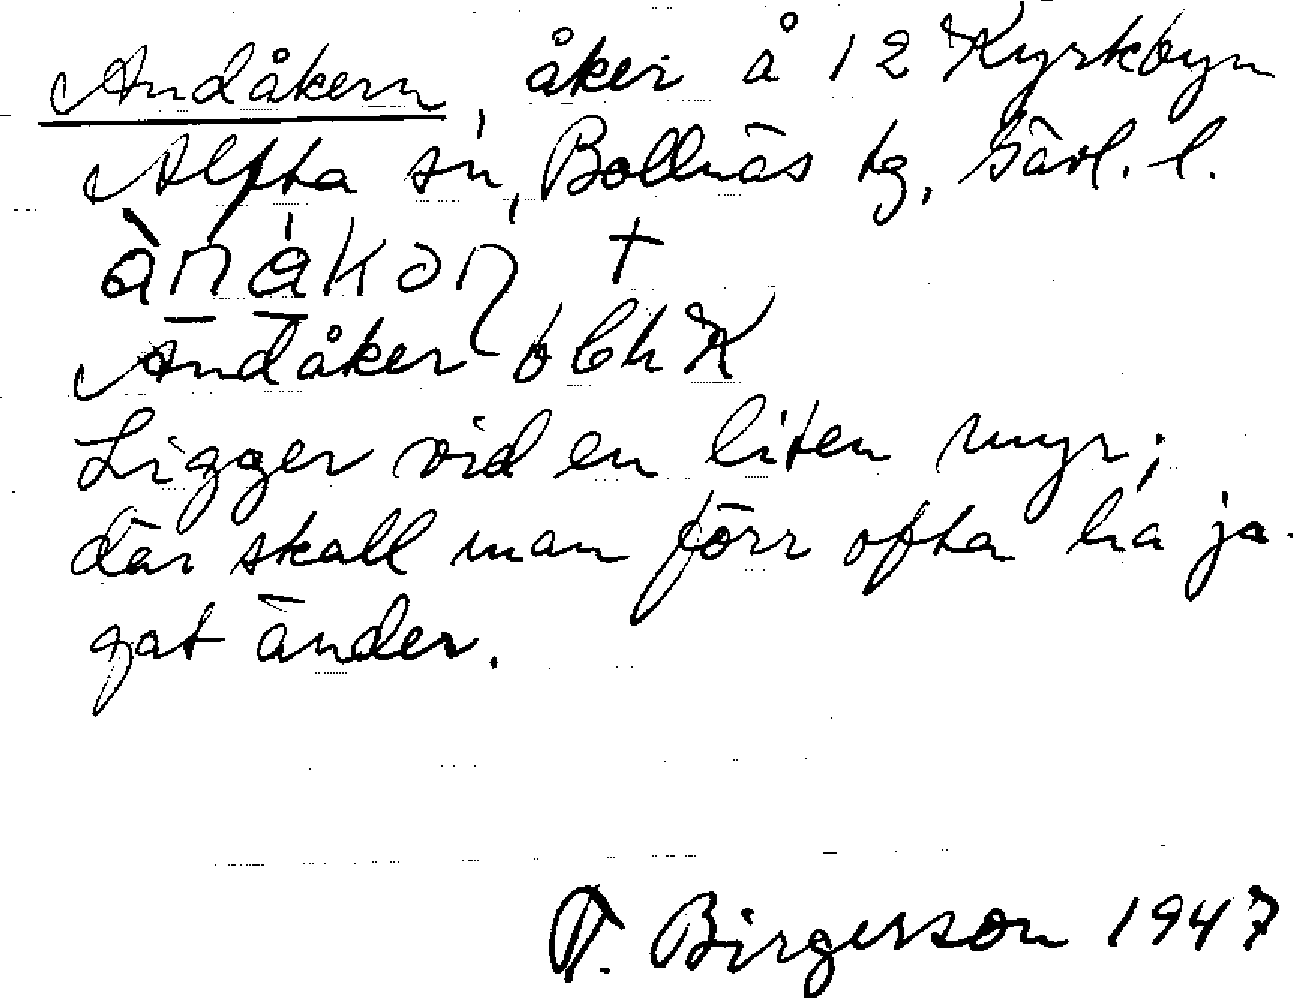 Andåkern, åker å 12 Kyrkbyn
Alfta sn, Bollnäs tg, Gävl. l.
ànákon +
Andåker
Ligger vid en liten myr;
där skall man förr ofta ha ja-
gat änder.
T. Birgerson 1947